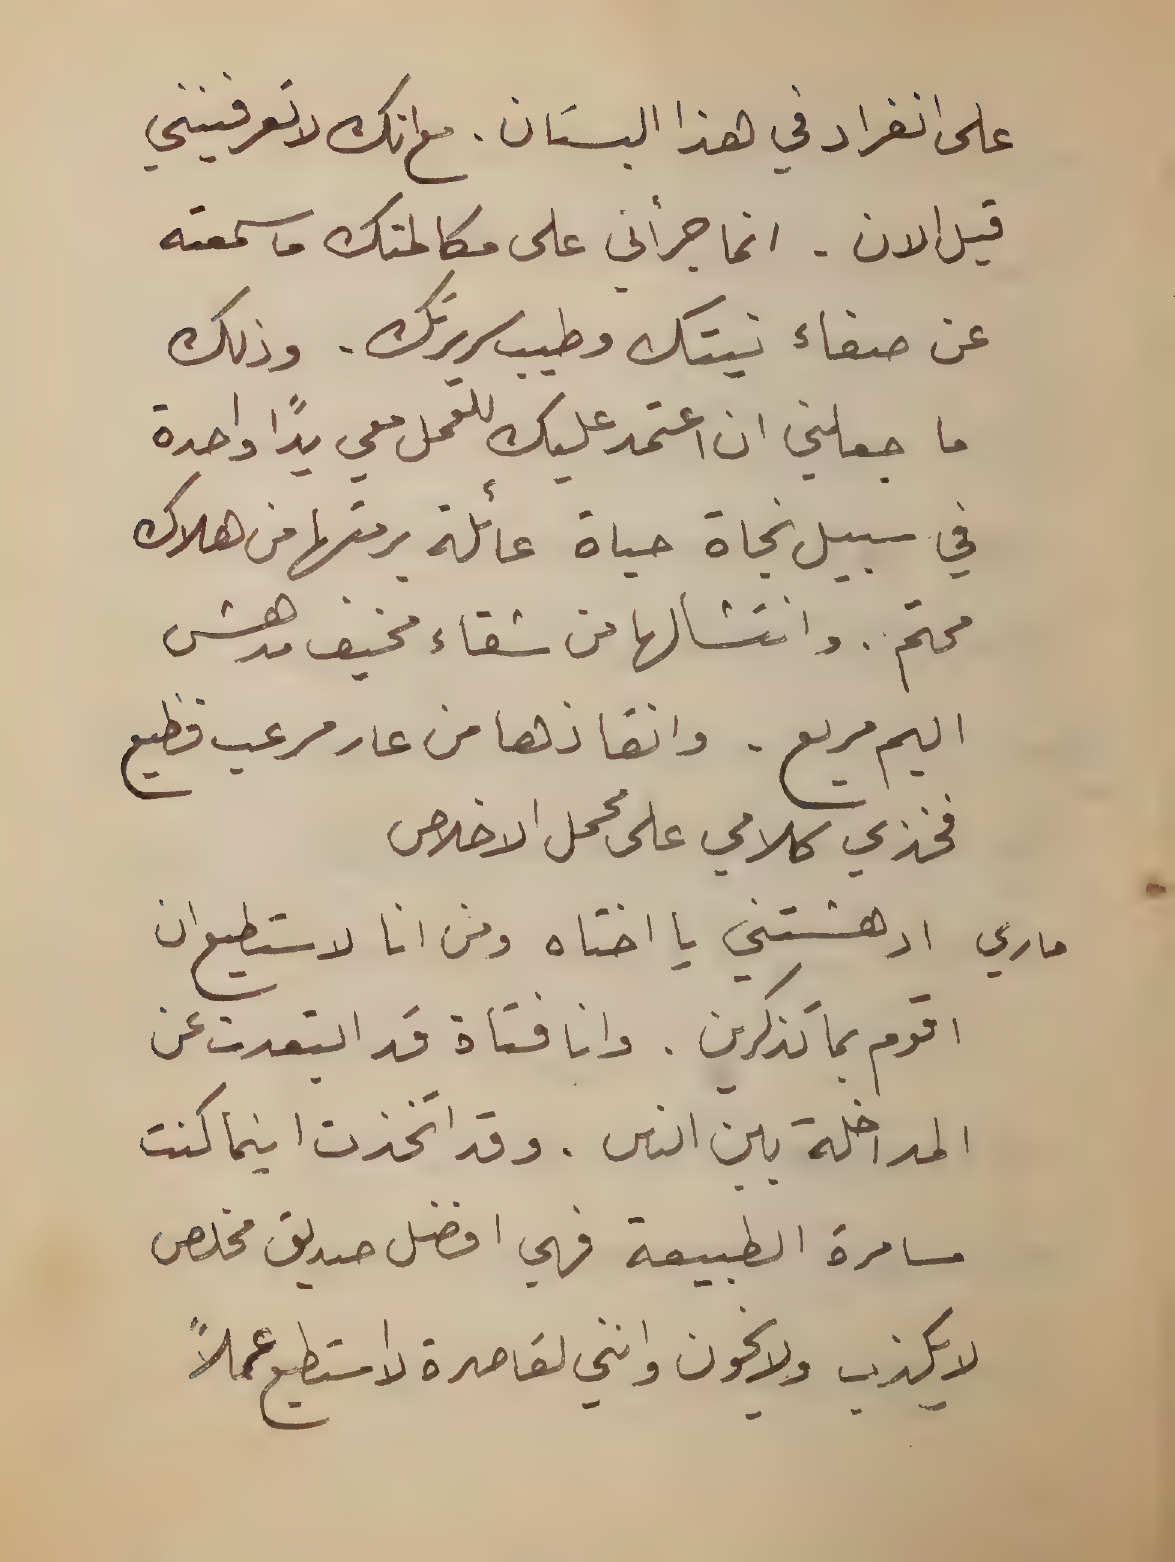 على انفراد في هذا البستان . مع انك لا تعرفينني
قبل الان . انما جرأني على مكالمتك ما سمعته
عن صفاء نيتك وطيب سريرتك . وذلك
ما جعلني ان اعتمد عليك للعمل معي يدًا واحدة
في سبيل نجاة حياة عائلة برمتها من هلاك
محتم . وانتشالها من شقاء مخيف مدهش
اليم مريع . وانقاذها من عار مرعب فظيع
فخذي كلامي على محمل الاخلاص
ماري ادهشتني يا اختاه ومن انا لاستطيع ان
اقوم بما تذكرين . وانا فتاة قد ابتعدت عن
المداخلة بين الناس . وقد اتخذت اينما كنت
مسامرة الطبيعة فهي افضل صديق مخلص
لا يكذب ولا يخون وانني لقاصرة لا استطيع عملاً